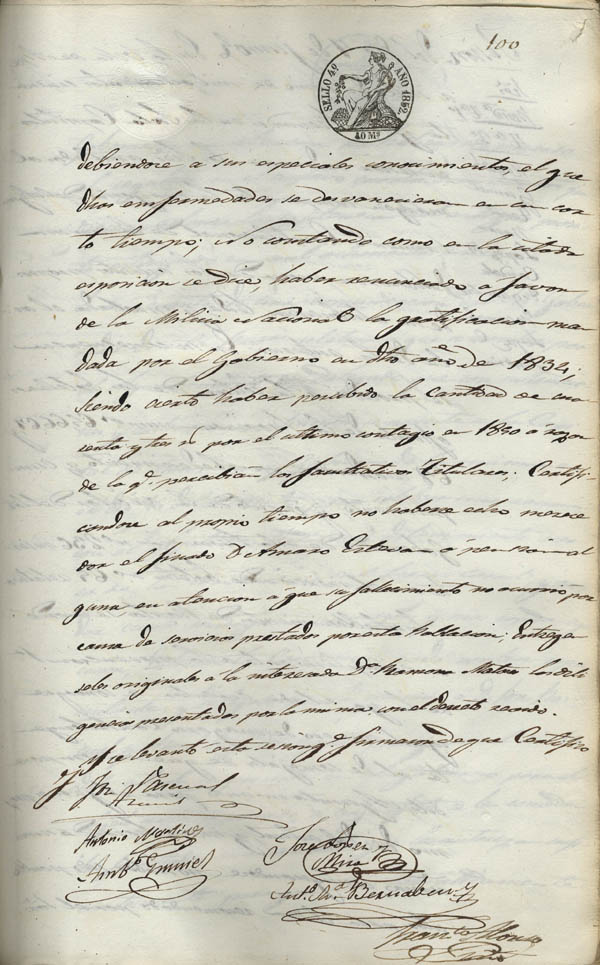 100
SELLO 4º AÑO 1862.
40 Ms
debiendose a sus especiales conocimientos, el que
dhas enfermedades se desvanecieran en un cor-
to tiempo; No constando como en la citada
esposicion se dice, haber renunciado a favor
de la Milicia Nacional la gratificacion man
dada por el Gobierno en dho año de 1834;
Siendo cierto haber percibido la Cantidad de
senta y tres por el ultimo contagio en a razon
de la q.e percibian los facultativos Titulares; Certifi-
candose al propio tiempo no haberse echo merece
dor el finado D. Amaro Estevan á pension al
guna, en atencion á que su fallecimiento no ocurrió por
causa de servicios prestados por esta Poblacion; Entregan
seles originales a la interesada D.a Ramona las dili
gencias presentadas por la misma con el
Y se levantó esta sesion q.e firmaron de que Certifico
Pascual
Antonio
José Lopez
Mira
Ant.o Bernabeu
Fran.co Alonso